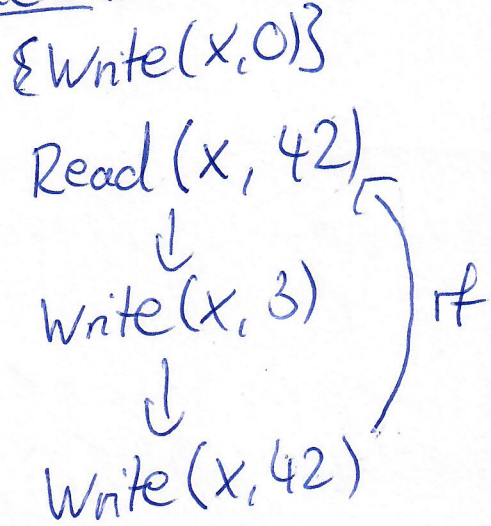 {Write(x,0)}
Read(x, 42)
↓
Write(x, 3)
rf
↓
Write(x,42)